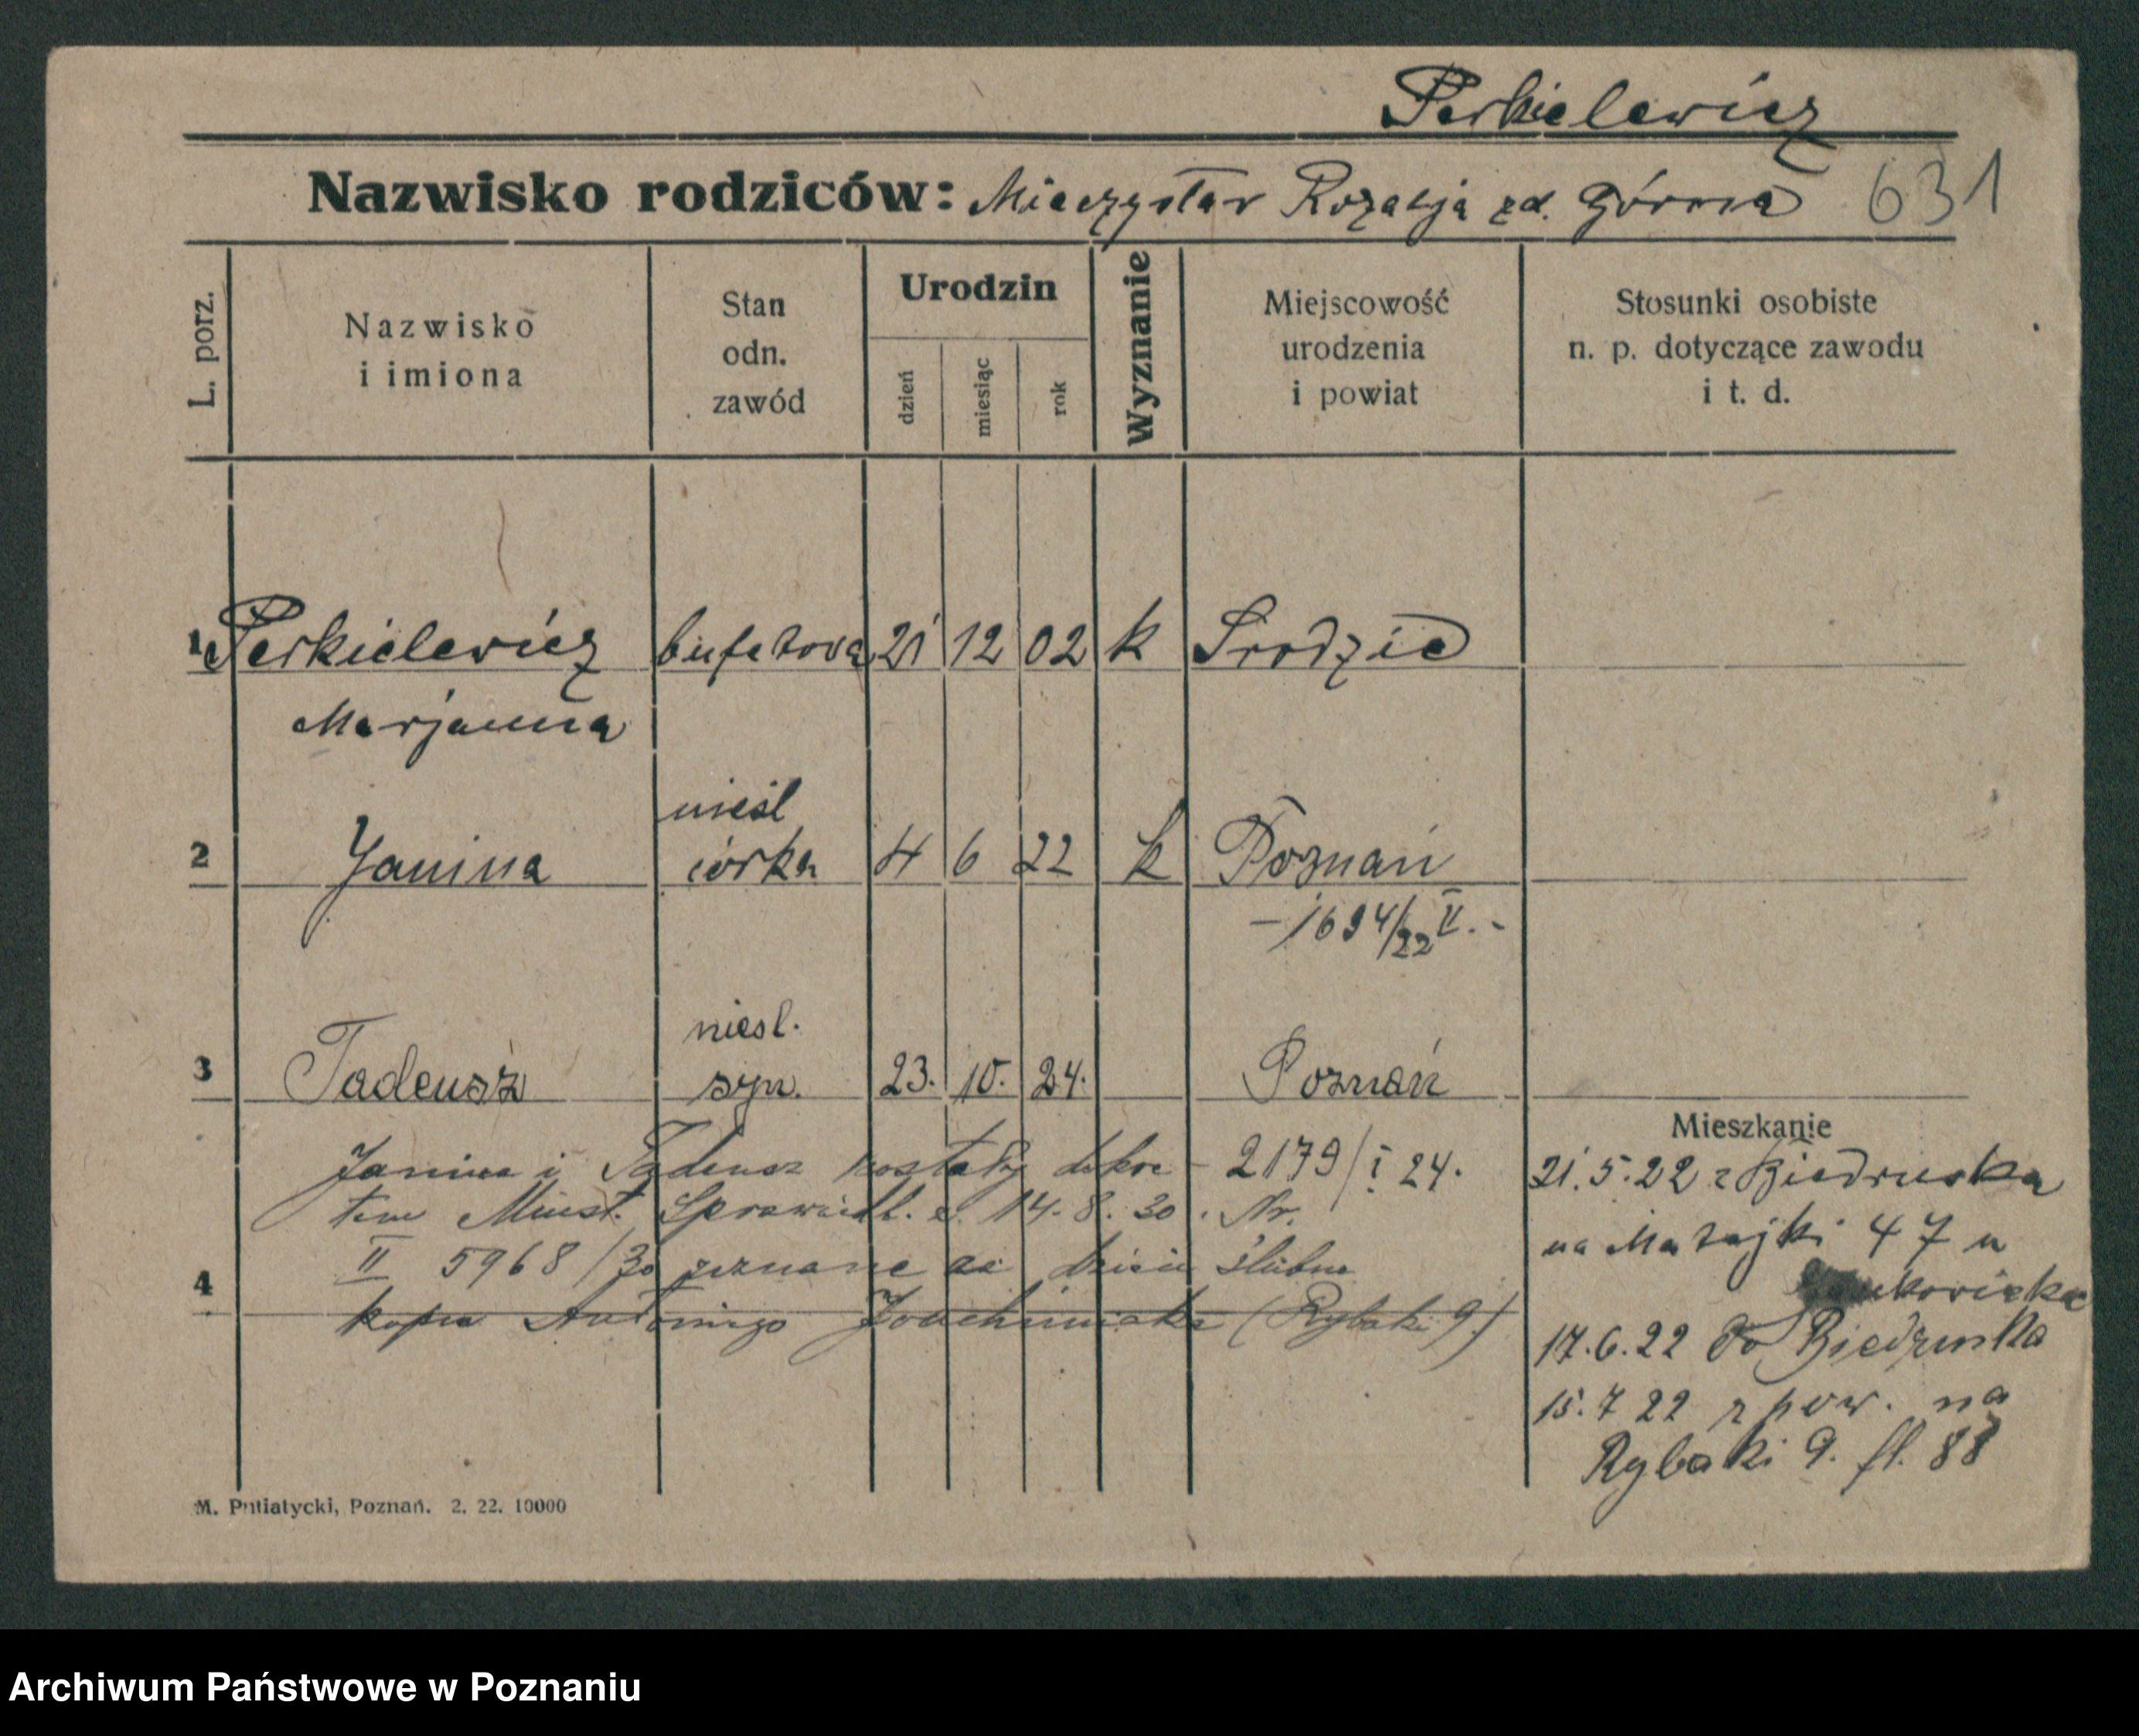 Perkielewicz
Nazwisko rodziców: Mieczysław Rozalja zd. Górna 631
L. porz.
Nazwisko i imiona
Stan odn. zawód
Urodzin
dzień
miesiąc
rok
Wyznanie
Miejscowość urodzenia i powiat
Stosunki osobiste n. p. dotyczące zawodu i t. d.
1 Perkielewicz bufetowa 21 12 02 k Srodzie
Marjanna
nieśl
2 Janina córka 4 6 22 k Poznań
- 1694/22 II. -
nieśl.
3 Tadeusz syn. 23. 10. 24. Poznań
Mieszkanie
Janina i Tadeusz zostały dekre- 2179/I 24.
tem Minist. Sprawiedl. z 14.8.30. Nr.
II 5968/30 uznane za dzieci ślubne
4
Antoniego (Rybaki 9)
21.5.22 z Biedruska
na Matejki 47 u
17.6.22 do Biedruska
15.7 22 z pow. na
Rybaki 9. fl. 88
M. Putiatycki, Poznań. 2. 22. 10000
Archiwum Państwowe w Poznaniu